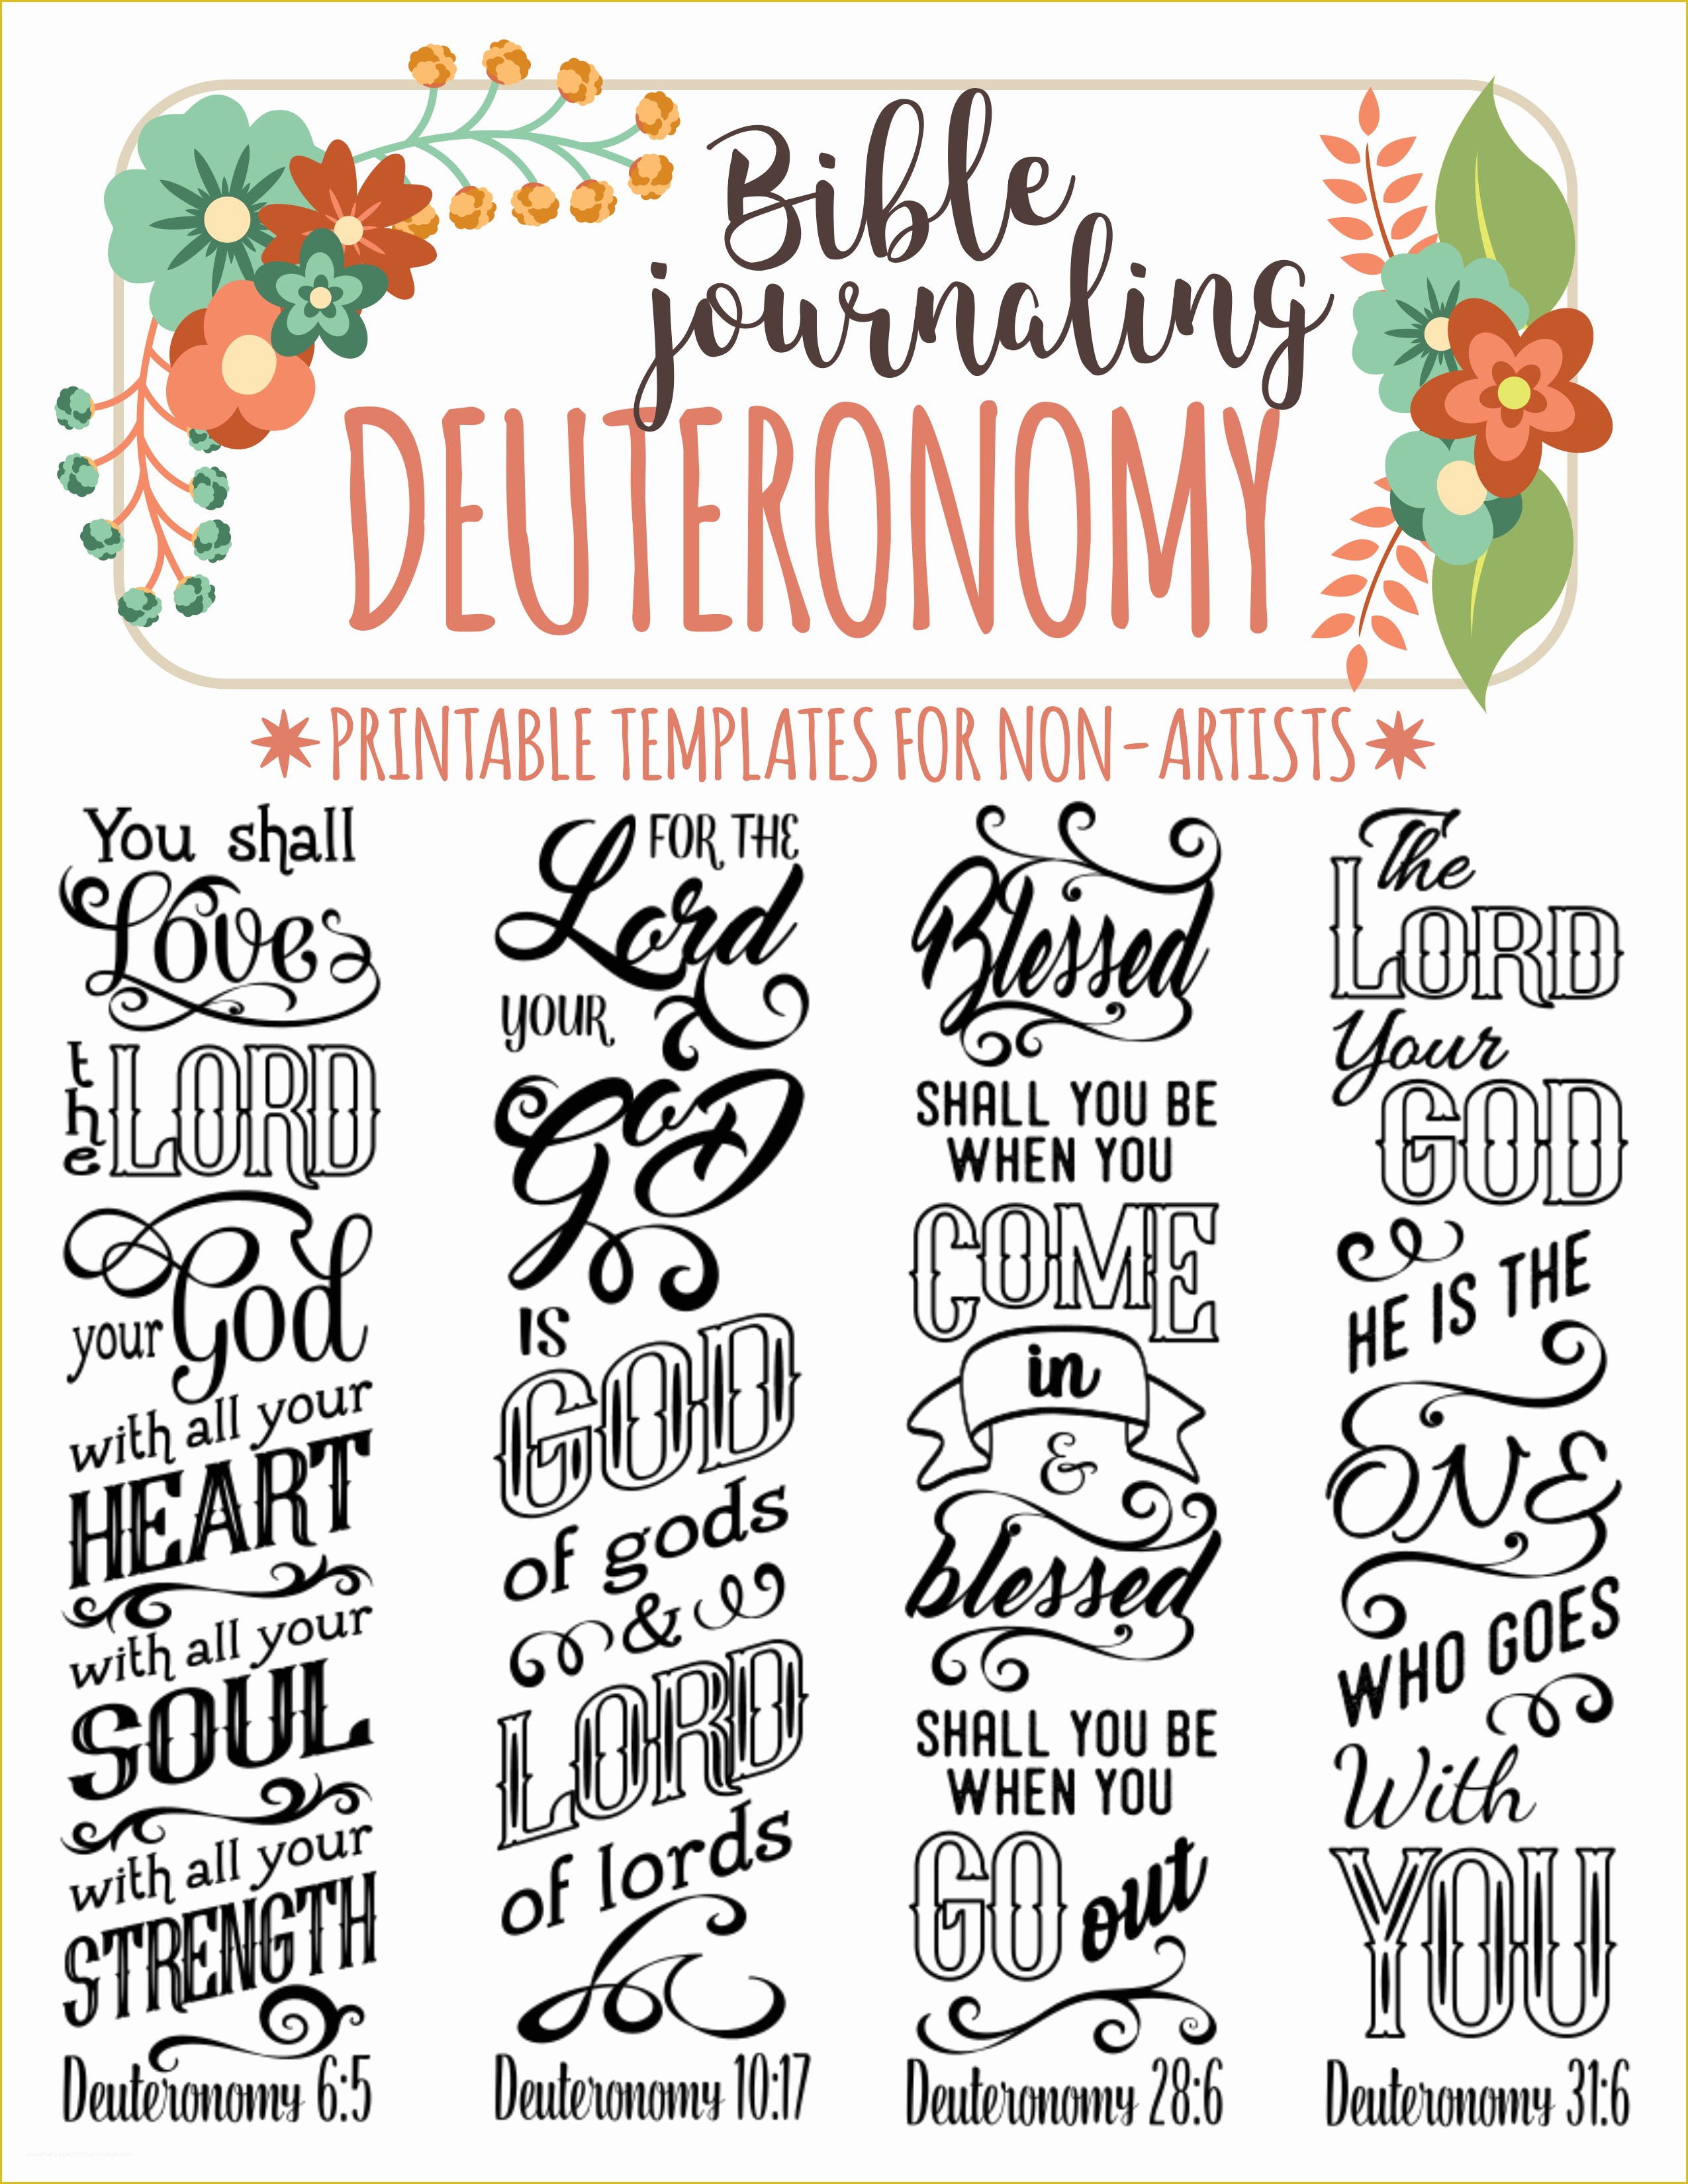 Bible
journaling
DEUTERONOMY
PRINTABLE TEMPLATES FOR NON-ARTISTS
You shall
Love
the LORD
your God
with all your
HEART
with all your
SOUL
with all your
STRENGTH
Deuteronomy 6:5
FOR THE
Lord
YOUR
GOD
IS
GOD
of gods
&
LORD
of lords
Deuteronomy 10:17
Blessed
SHALL YOU BE
WHEN YOU
COME
in
&
blessed
SHALL YOU BE
WHEN YOU
GO out
Deuteronomy 28:6
The
LORD
Your
GOD
HE IS THE
ONE
WHO GOES
With
YOU
Deuteronomy 31:6